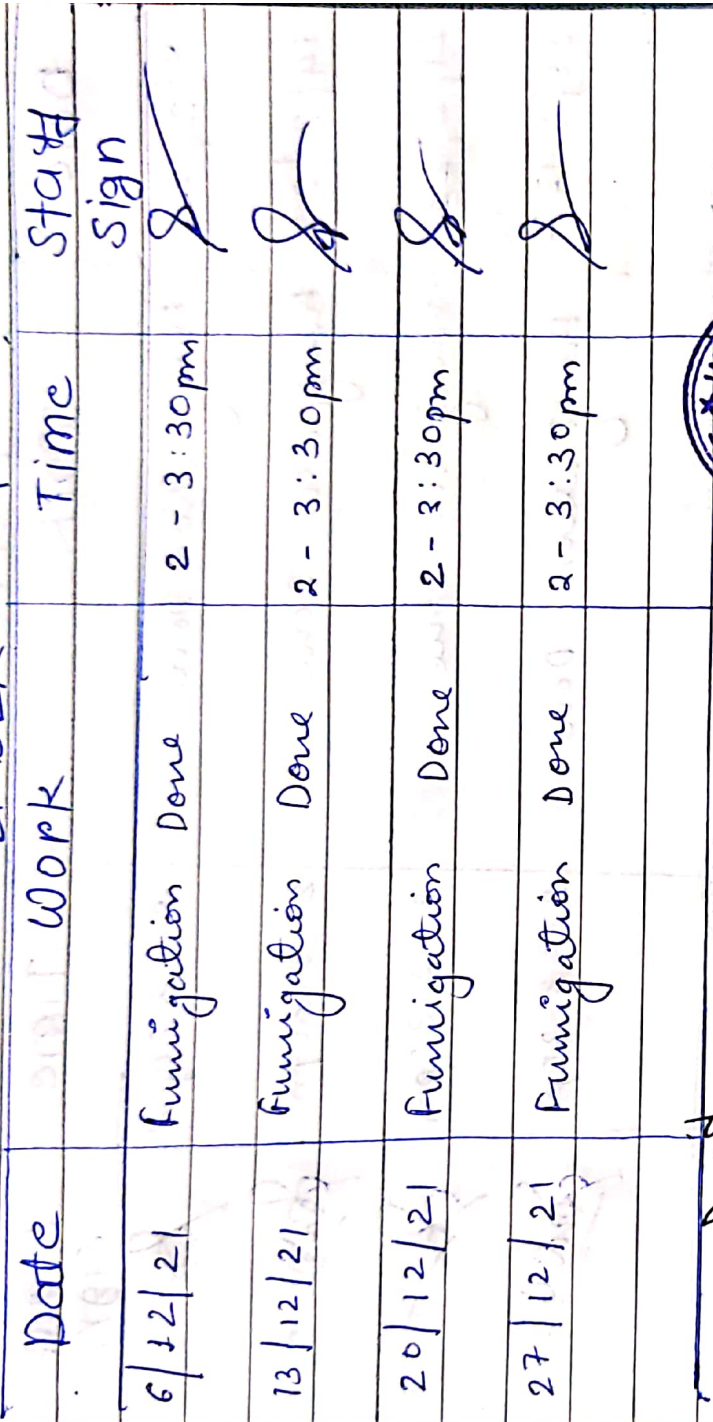 Date Work Time Staff
Sign
6/12/21 Fumigation Done 2 - 3:30pm
13/12/21 Fumigation Done 2 - 3:30pm
20/12/21 Fumigation Done 2 - 3:30pm
27/12/21 Fumigation Done 2 - 3:30pm